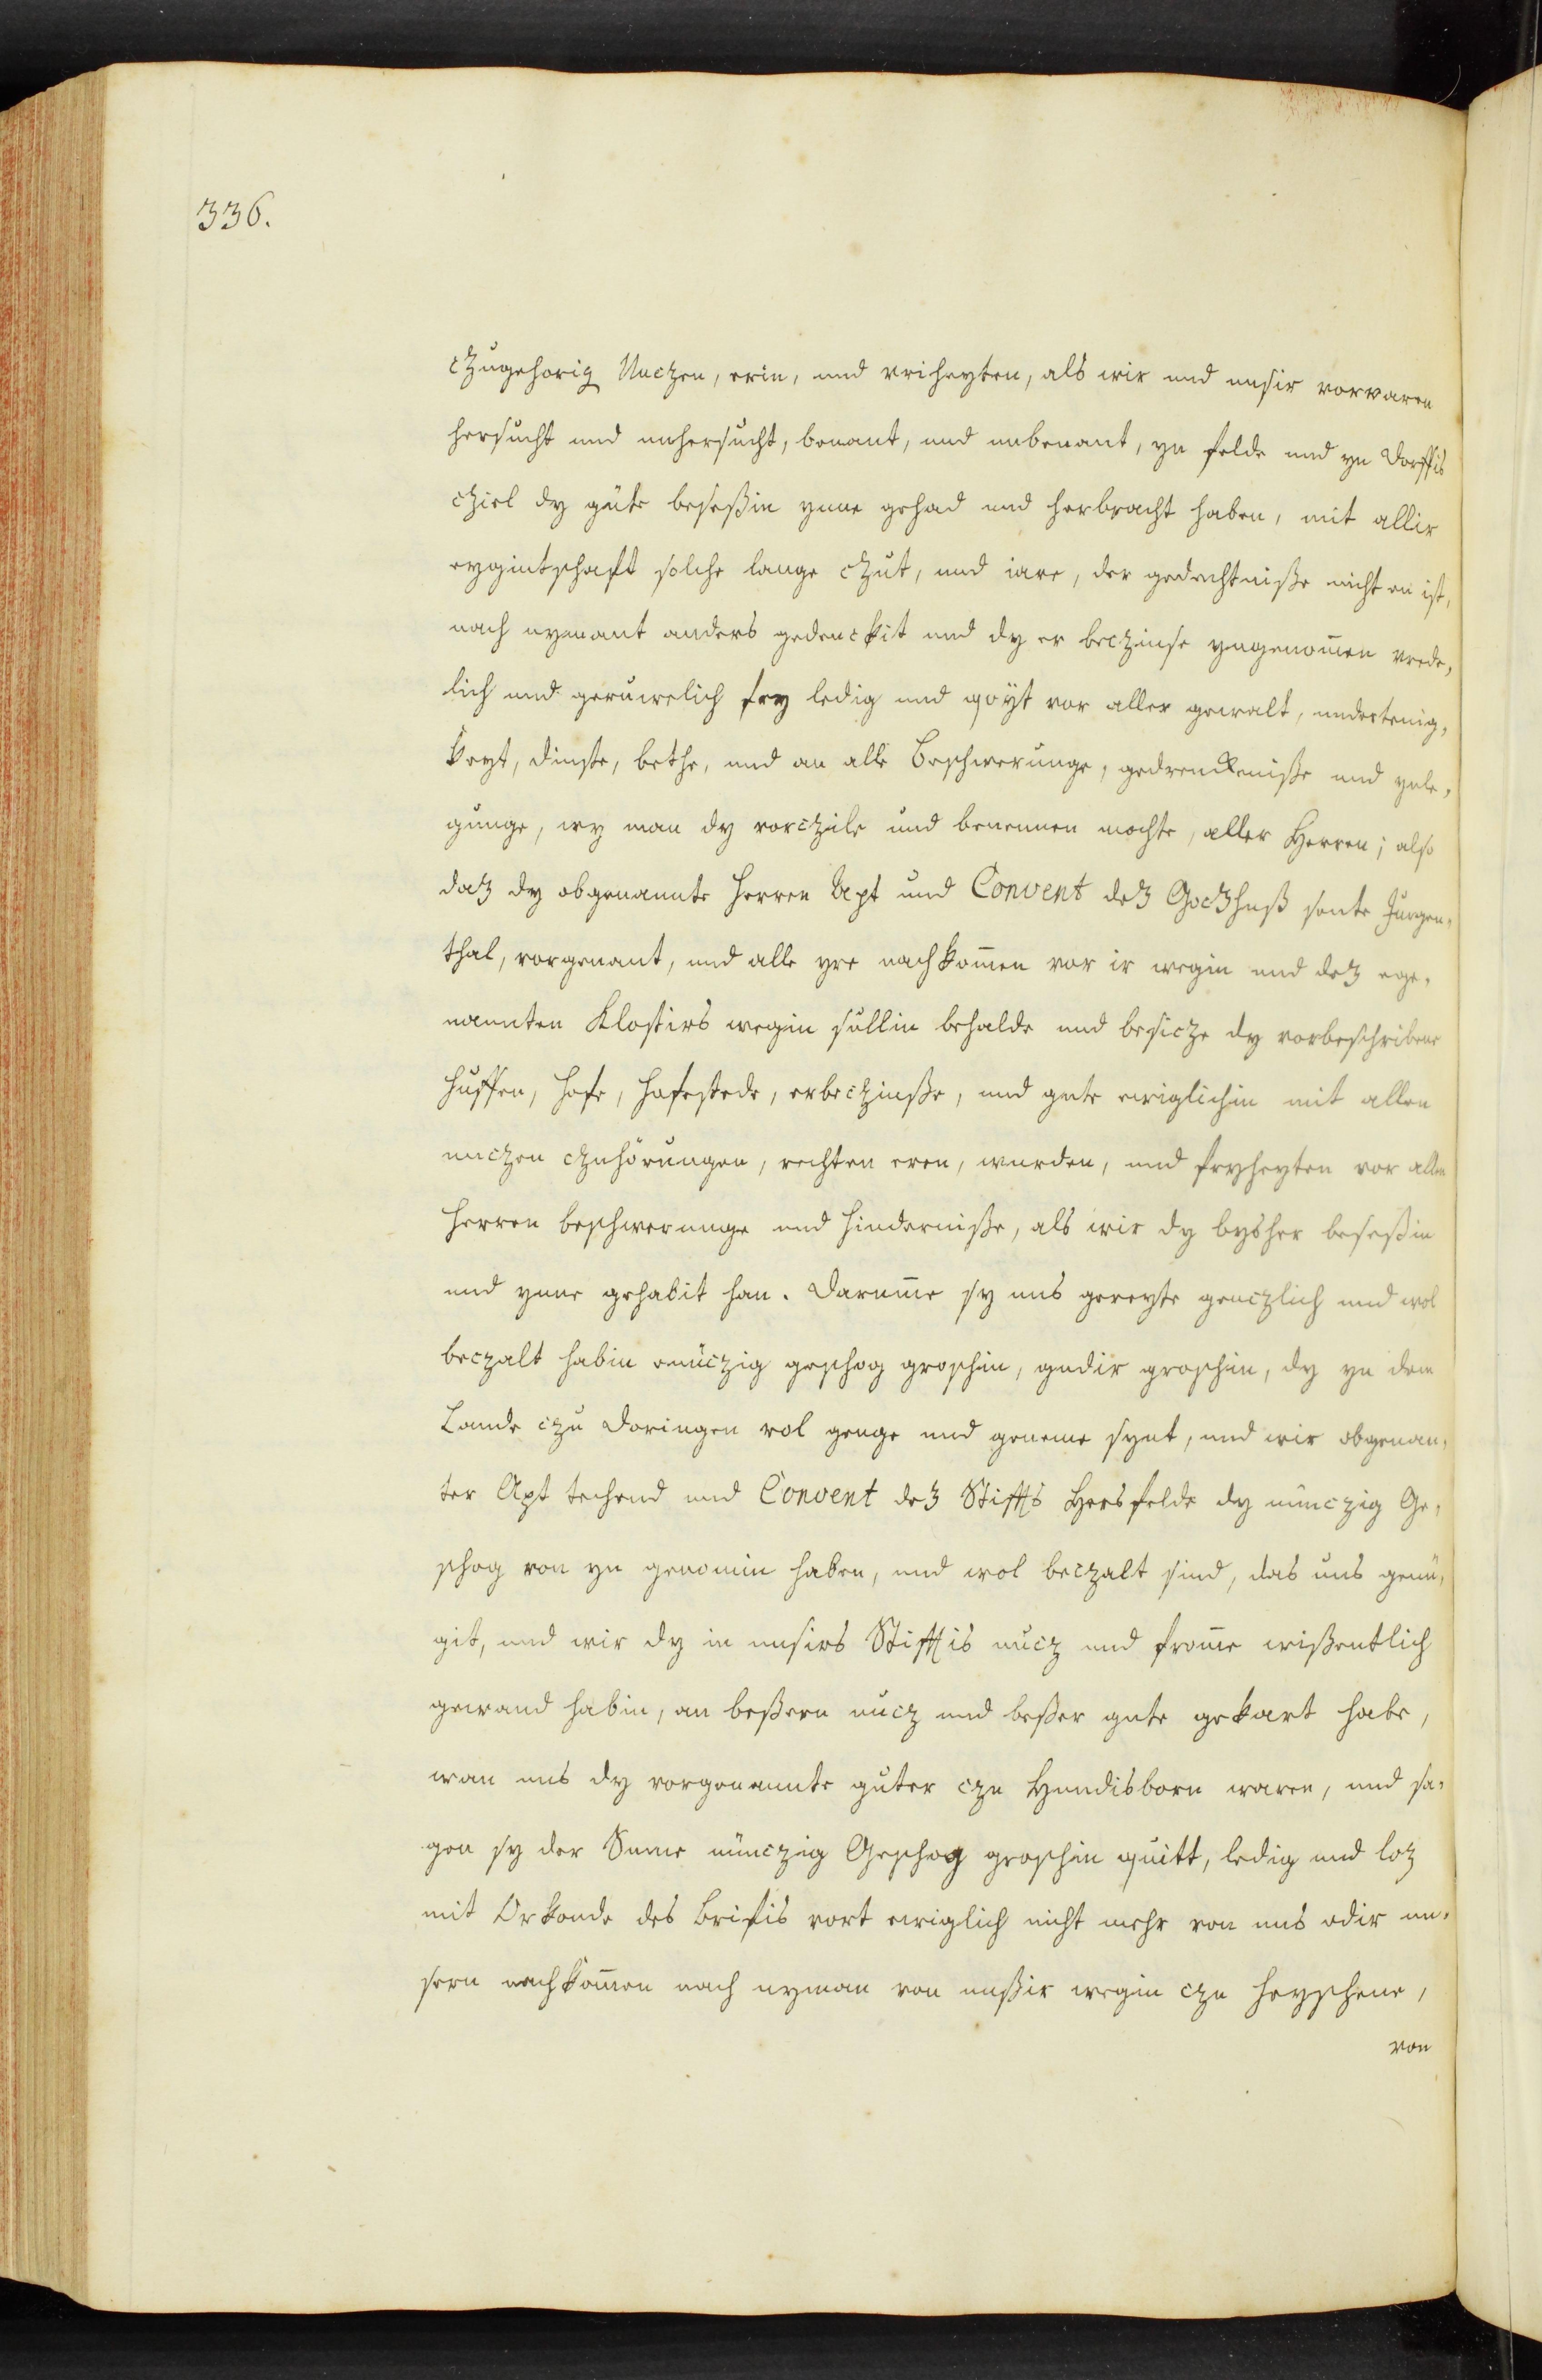 336.
czugehorig Nuczen, erin, und vriheyten, als wir und unsir vorvaren
hersucht und unhersucht, benant, und unbenant, yn felde und yn dorffis
cziel dy gute beseßin ynne gehad und herbracht haben, mit allir
eygintschafft solche lange czut, und iare, der gedechtniße nicht en ist,
noch nymant anders gedenckit und dy er beczinse yngenom̄en vrede,
lich und geruwelich fry ledig und qvyt vor aller gewalt, undertenig,
keyt, dinste, bethe, und an alle Beschwerunge, gedrenckeniße und ynle,
gunge, wy man dy vorczile und benennen mochte, aller Herren; also
daz dy obgenannte Herren Apt und Convent dez Goczhuß sente Jurgen,
thal, vorgenant, und alle yre nachkom̄en vor ir wegin und dez ege,
nannten Klostirs wegin sullin behalde und besicze dy vorbeschribene
Huffen, Hofe, Hofestede, erbeczinße, und gute ewiglichin mit allen
nuczen czuhörungen, rechten eren, wurden, und fryheyten vor allen
Herren beschwerunge und Hinderniße, als wir dy bysher beseßin
und ynne gehabit han. Darum̄e sy uns gereyte genczlich und wol
beczalt habin nuͤczig geschog groschin, gudir groschin, dy yn dem
Lande czu Doringen vol genge und geneme synt, und wir obgenan,
ter Apt techend und Convent dez Stiffts Hersfelde dy nünczig Ge,
schog von yn genomin haben, und wol beczalt sind, das uns genü,
git, und wir dy in unsirs Stifftis nucz und from̄e wißentlich
gewand habin, an beßern nucz und beßer gute gekart habe,
wan uns dy vorgenannte guter czu Hundisborn waren, und sa,
gen sy der Sume nünczig Geschog groschin quitt, ledig und loz
mit Orkonde des Brifis vort ewiglich nicht mehr von uns odir un,
sern nachkom̄en noch nyman von unßir wegin czu heyschene,
von